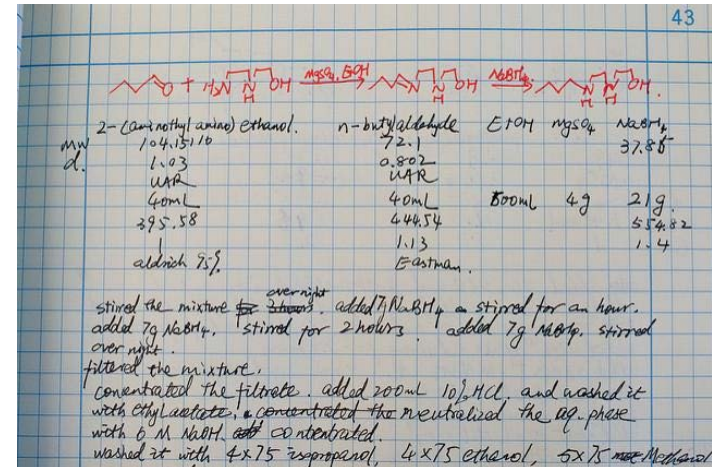 43
O + H₂N N H OH MgSO₄, EtOH N N H OH NaBH₄ N H N H OH
2-(aminothyl amino) ethanol. n-butylaldehyde EtOH MgSO₄ NaBH₄
MW 104.15110 72.1 37.85
d. 1.03 0.802
VAR VAR
40mL 40mL 500mL 4g 21g.
395.58 444.54 554.82
1 1.13 1.4
aldrich 95% Eastman.
over night
stirred the mixture for 3 hours. added 7g NaBH₄ stirred for an hour.
added 7g NaBH₄. stirred for 2 hours. added 7g NaBH₄. stirred
over night.
filtered the mixture.
concentrated the filtrate. added 200ml 10% HCl, and washed it
with ethyl acetate, concentrated the neutralized the aq. phase
with 6 M NaOH. contentrated.
washed it with 4×75 isopropanol, 4×75 ethanol, 5×75 Methanol